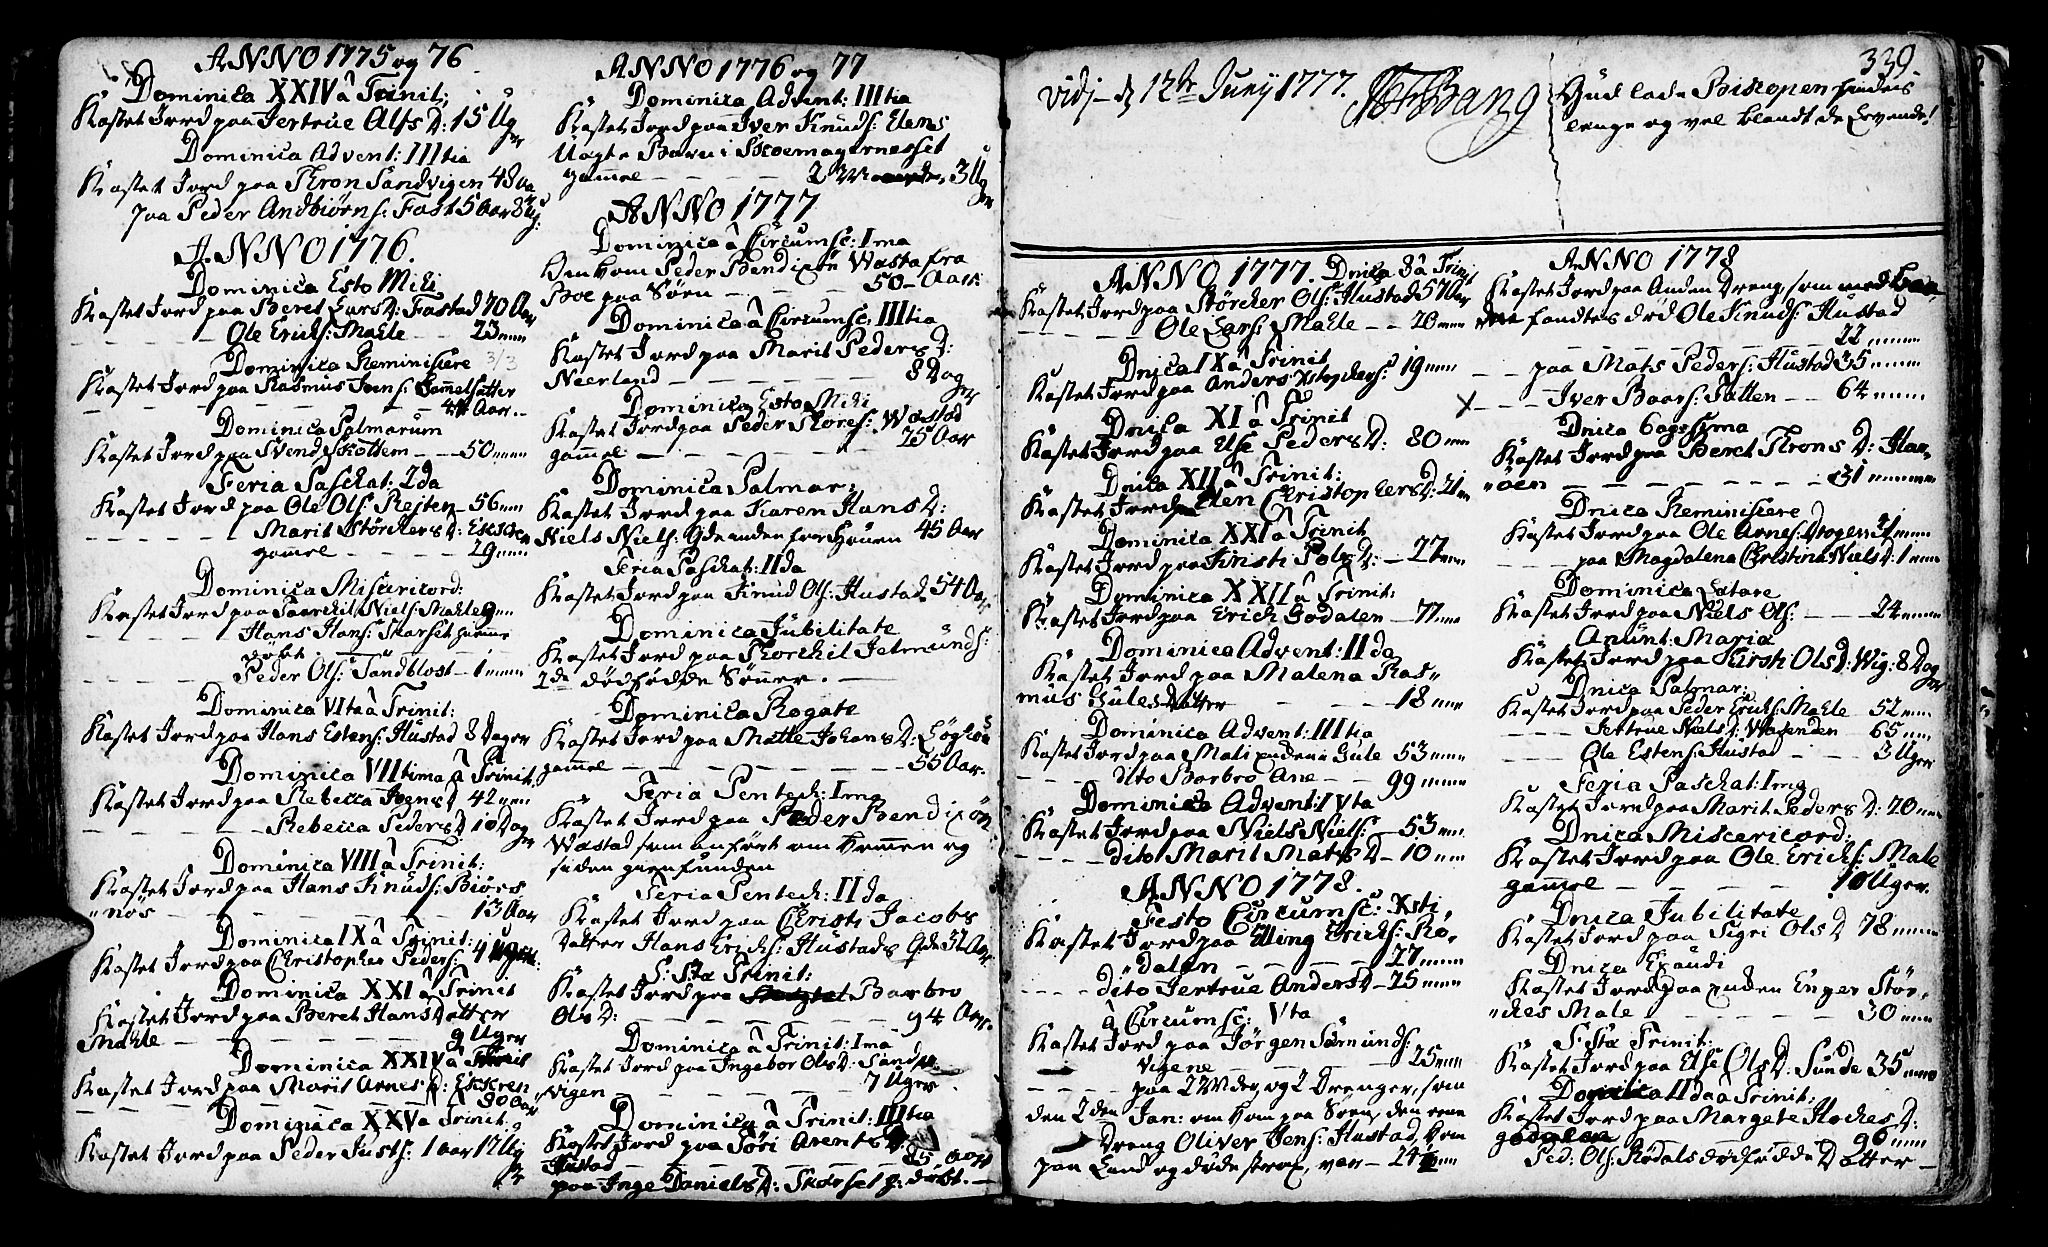 ANNO 1775 og 76
Dominica XXIV â Trinit:
Kastet Jord paa Jertrue Olfs D: 15 Ug
er
Dominica Advent: IIItia
Kastet Jord paa Thron Sandvigen 48 aa
paa Peder Andbiørns: Fast 5 Aar 8 Ug:
ANNO 1776.
Dominica Esto Mihi
Kastet Jord paa Beret Lars D: Fastad 70 Aar
Ole Erichs: Mahle - 23
Dominica Reminiscere 3/3
Kastet Jord paa Rasmus Ivens: Gammelsætter
44 Aar
Dominica Palmarum
Kastet Jord paa Svend Skottem - - 50
Feria Paschat: 2da
Kastet Jord paa Ole Ols: Reiten - 56
Marit Størchers D:
gammel - - - - 29
Dominica Misericord:
Kastet Jord paa Niels: Mahle 9
Hans Hans: Skarset hiemme
døbt
Peder Ols: Sandblost - 1
Dominica VIta â Trinit:
Kastet Jord paa Hans Estens: Hustad 8 Dager
Dominica VIItima â Trinit.
Kastet Jord paa Rebecca Ivens D 42
Rebecca Peders D 10 Dag
er
Dominica VIII â Trinit:
Kastet Jord paa Hans Knuds: Biørs
"nøs - - - 13 Aar
Dominica IX â Trinit:
Kastet Jord paa Christopher Peders: 4 Uger
Dominica XXI â Trinit
Kastet Jord paa Beret Hans Datter
Mahle - - - 9 Uger
Dominica XXIV â Trinit
Kastet Jord paa Marit Arnes D:
90 Aar
Dominica XXV â Trinit:
Kastet Jord paa Peder Justs: 1 aar 17 Ug
er
ANNO 1776 og 77
Dominica Advent: IIItia
Kastet Jord paa Iver Knuds: Elens
Uægte Barn i Skoemagernesset
gammel - - - 2 3 Ug
er
ANNO 1777
Dominica â Circumsc: Ima
Peder Bendixøn Wæstad fra
Boe paa Søen - - - 50 - Aar
Dominica â Circumsc: IIItia
Kastet Jord paa Marit Peders D:
Neerland - - - 8 Dag
er
Dominica Esto Mihi
Kastet Jord paa Peder Tores: Wæstad
gammel - - - 75 Aar
Dominica Palmar:
Kastet Jord paa Karen Hans D:
Niels Niels: Qde uden for Houen 45 Aar
Feria Paschat: IIda
Kastet Jord paa Knud Ols: Hustad 54 Aar
Dominica Jubilitate
Kastet Jord paa Thorchil Jetmunds:
2de dødfødde Sønner.
Dominica Rogate
Kastet Jord paa Mætte Johans D:
gammel - - - 55 Aar.
Feria Pentech: Ima
Kastet Jord paa Peder Bendixøn
Wæstad som anført om kommen og
siden gien funden
Feria Pentech: IIda
Kastet Jord paa Christi Jacobs
Datter Hans Erichs: Hustads Qde 32 Aar
S: Stæ Trinit:
Kastet Jord paa Barbro
Ols D: - - - 94 Aar
Dominica â Trinit: Ima
Kastet Jord paa Ingebor Ols D: Sand
vigen - - - 7 Uger
Dominica â Trinit: IIItia
Kastet Jord paa Siri Arents D:
Hustad - - - 85 Aar
paa Inge Daniels D: Skarset h: døbt.
339
Vidj - d 12te Junij 1777.
Bang
Gud lade Biskopen hendris
lenge og vel blandt de Levende!
ANNO 1777. Dnica 8 â Trinit
Kastet Jord paa Størcher Ols: Hustad 57 Aar
Ole Lars: Mahle - - 20
Dnica IX â Trinit
Kastet Jord paa Anders Xstophers: 19
Dnica XI â Trinit
Kastet Jord paa Else Peders D: 80
Dnica XII â Trinit:
Kastet Jord paa Elen Christophers D: 21
Dominica XXI â Trinit
Kastet Jord paa Kirsti Pols D: - 27
Dominica XXII â Trinit:
Kastet Jord paa Erich Godalen - 77
Dominica Advent: IIda
Kastet Jord paa Malena Ras=
mus Gules Datter - - 18
Dominica Advent: IIItia
Kastet Jord paa Mali Gule 53
Dito Barbro Ane - - 99
Dominica Advent: IVta
Kastet Jord paa Niels Niels: - 53
dito Marit Mats D - 10
ANNO 1778.
Festo Circumsc: Xsti
Kastet Jord paa Elling Erichs: Rø=
"dalen - - - 27
dito Jertrue Anders D - 25
â Circumsc: Vta
Kastet Jord paa Jørgen Sæmunds:
Vigene - - - 25
paa 2 og 2 Drenger, som
den 2den Jan: om kom paa Søen, den eene
Dreng Oliver Jens: Hustad, kom
paa Land og døde strax, var - 24
ANNO 1778
Kastet Jord paa Anden Dreng, som
fandtes død Ole Knuds: Hustad
22
paa Mats Peders: Hustad 35
X - - - Iver Baars: Tætten - - 64
Dnica 6agesima
Kastet Jord paa Beret Throns D: Har=
"øen - - - 31
Dnica Reminiscere
Kastet Jord paa Ole Arnes:
paa Magdalena Christina Niels D: 1
Dominica Lætare
Kastet Jord paa Niels Ols: - - - 24
Anunt: Mariæ
Kastet Jord paa Kirsti Ols D: Wig: 8 Dag
er
Dnica Palmar:
Kastet Jord paa Peder Erichs: Mahle 52
Jertrue Niels D: 65
Ole Estens: Hustad - - 3 Uger
Feria Paschat: Ima
Kastet Jord paa Marit Peders D: 20
Dnica Misericord:
Kastet Jord paa Ole Erichs: Male
gammel - - - 10 Uger.
Dnica Jubilitate
Kastet Jord paa Sigri Ols D 78
Dnica Exaudi
Kastet Jord paa Enger Stør=
"chers Male - - - 30
S: Stæ Trinit:
Kastet Jord paa Else Ols D: Sunde 35
Dominica II da â Trinit:
Kastet Jord paa Margete D:
godalen - - - 96
Ped: Ols: Rødals dødfødde Datter -